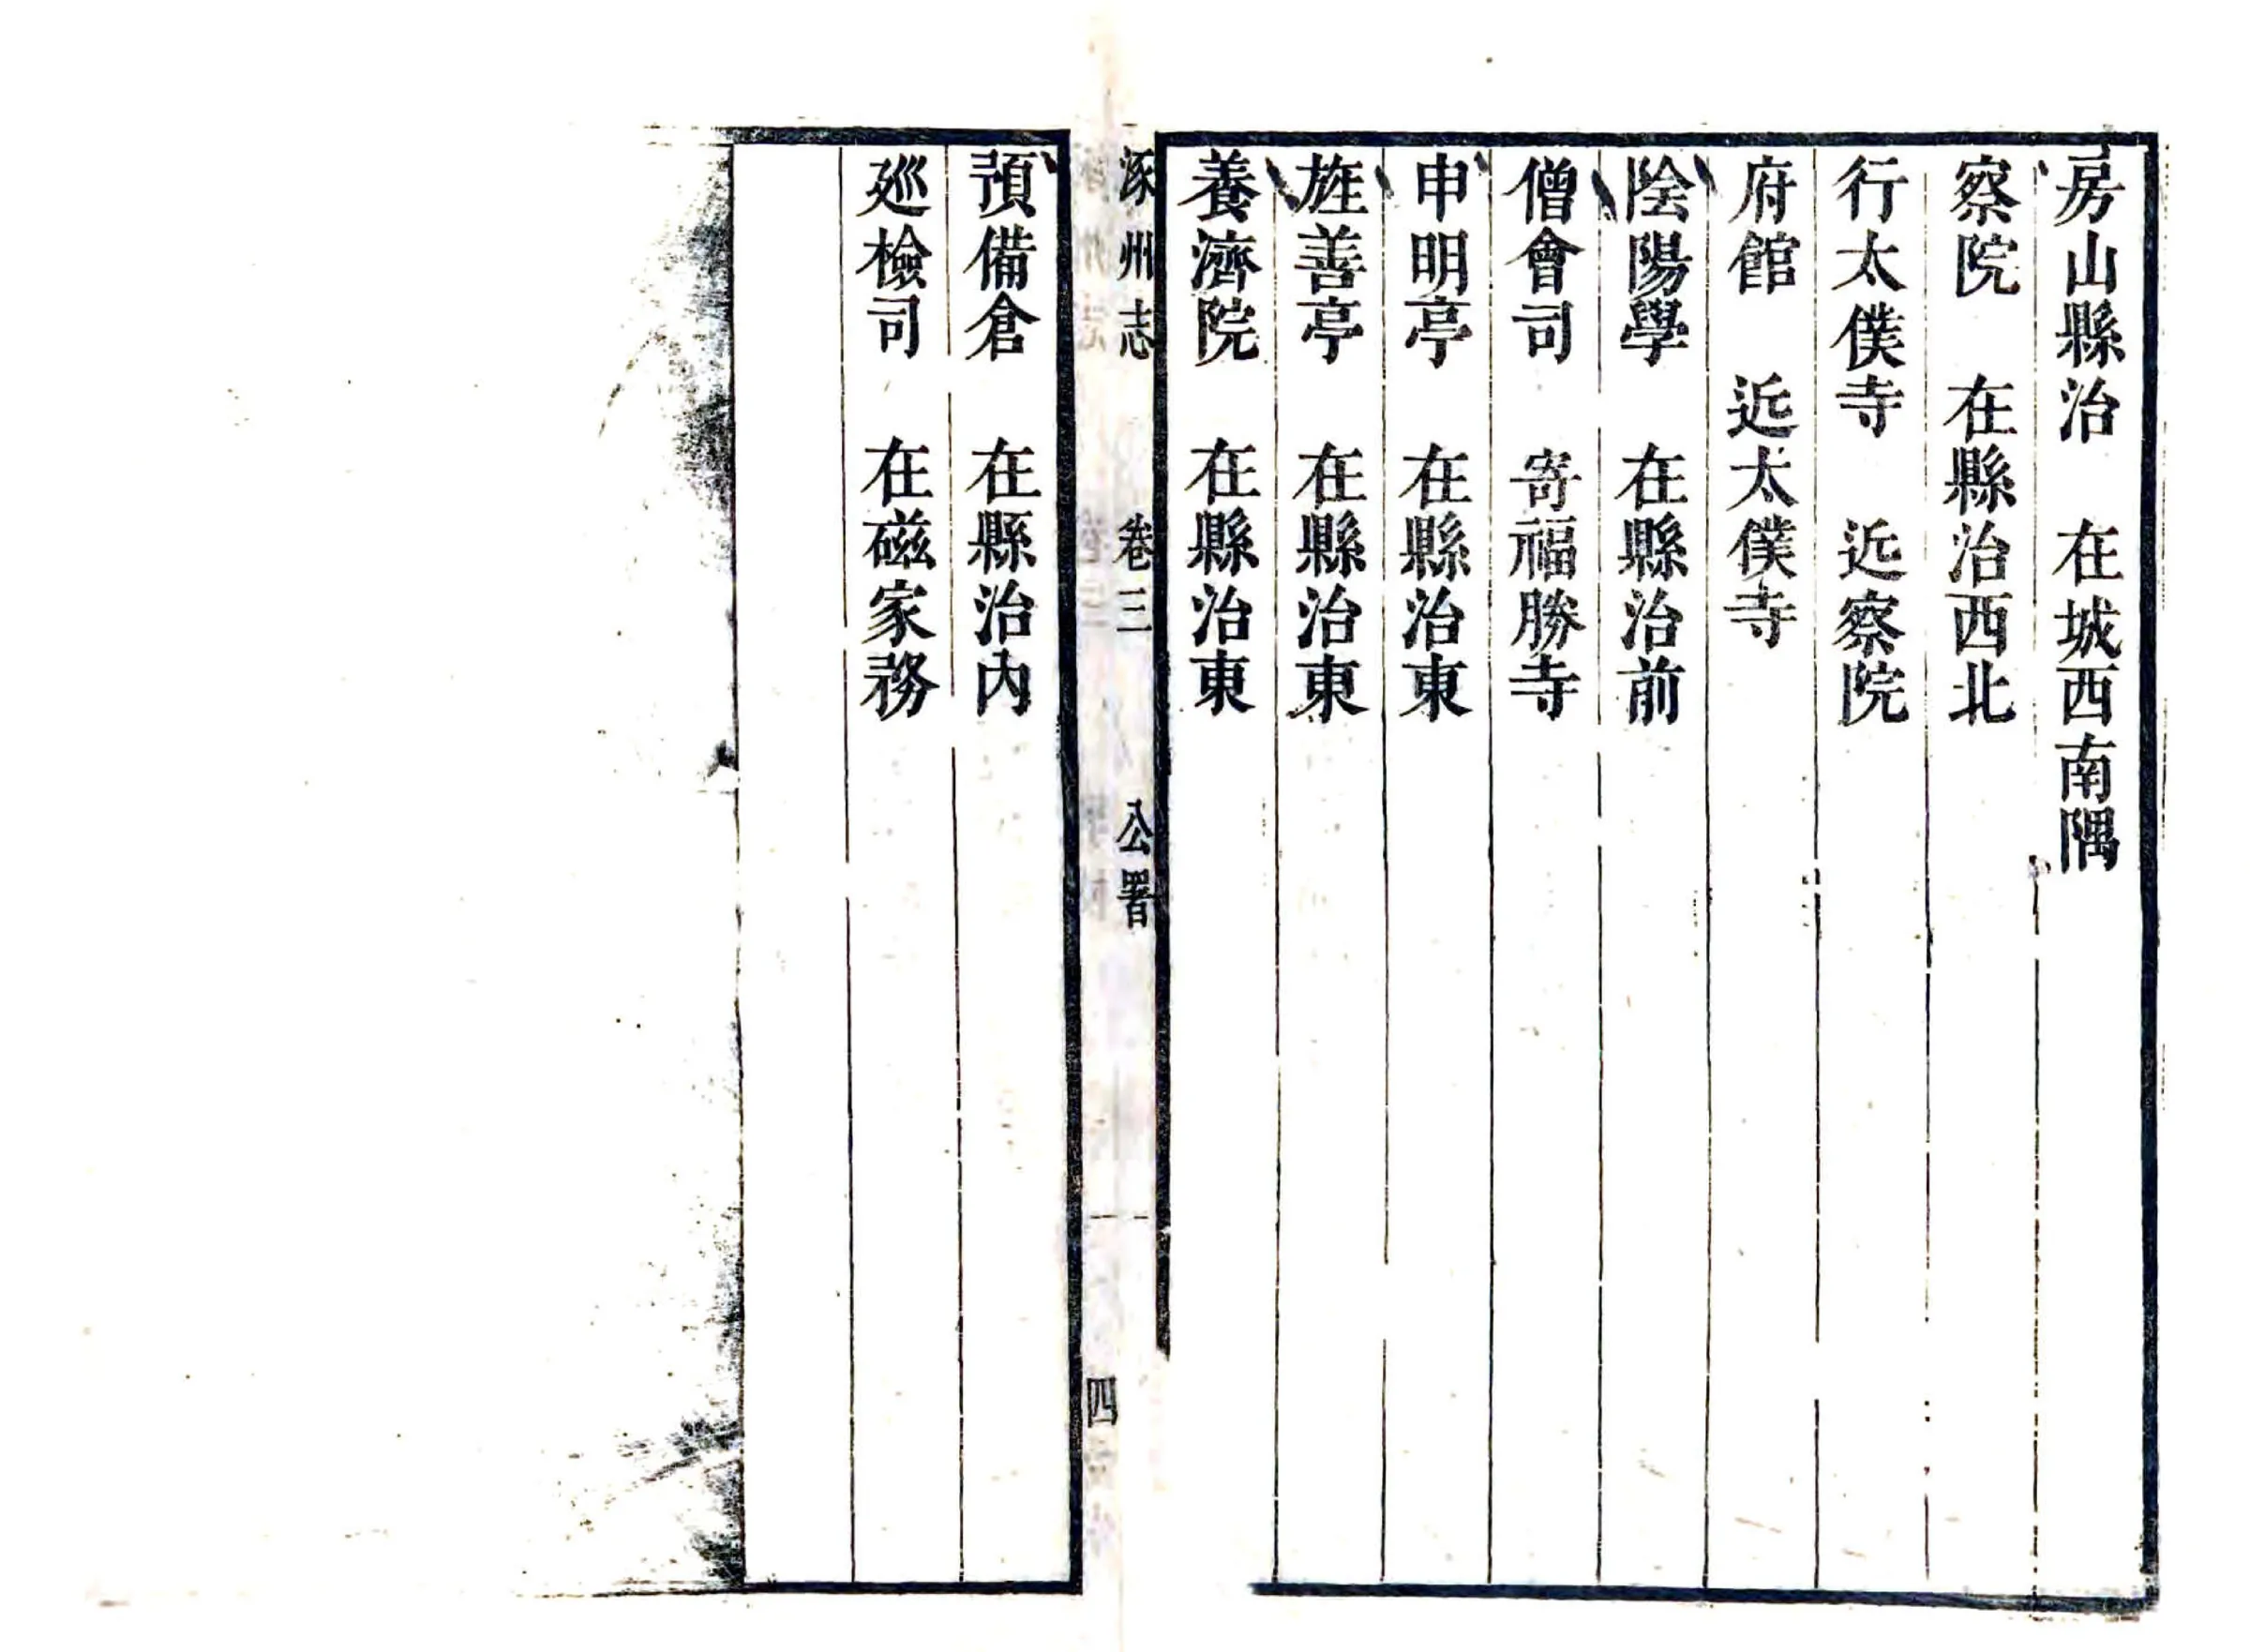 房山縣治　在城西南隅
察院　在縣治西北
行太僕寺　近察院
府館　近太僕寺
陰陽學　在縣治前
僧會司　寄福勝寺
申明亭　在縣治東
旌善亭　在縣治東
養濟院　在縣治東
涿州志　卷三　公署　四
預備倉　在縣治內
廵檢司　在磁家務